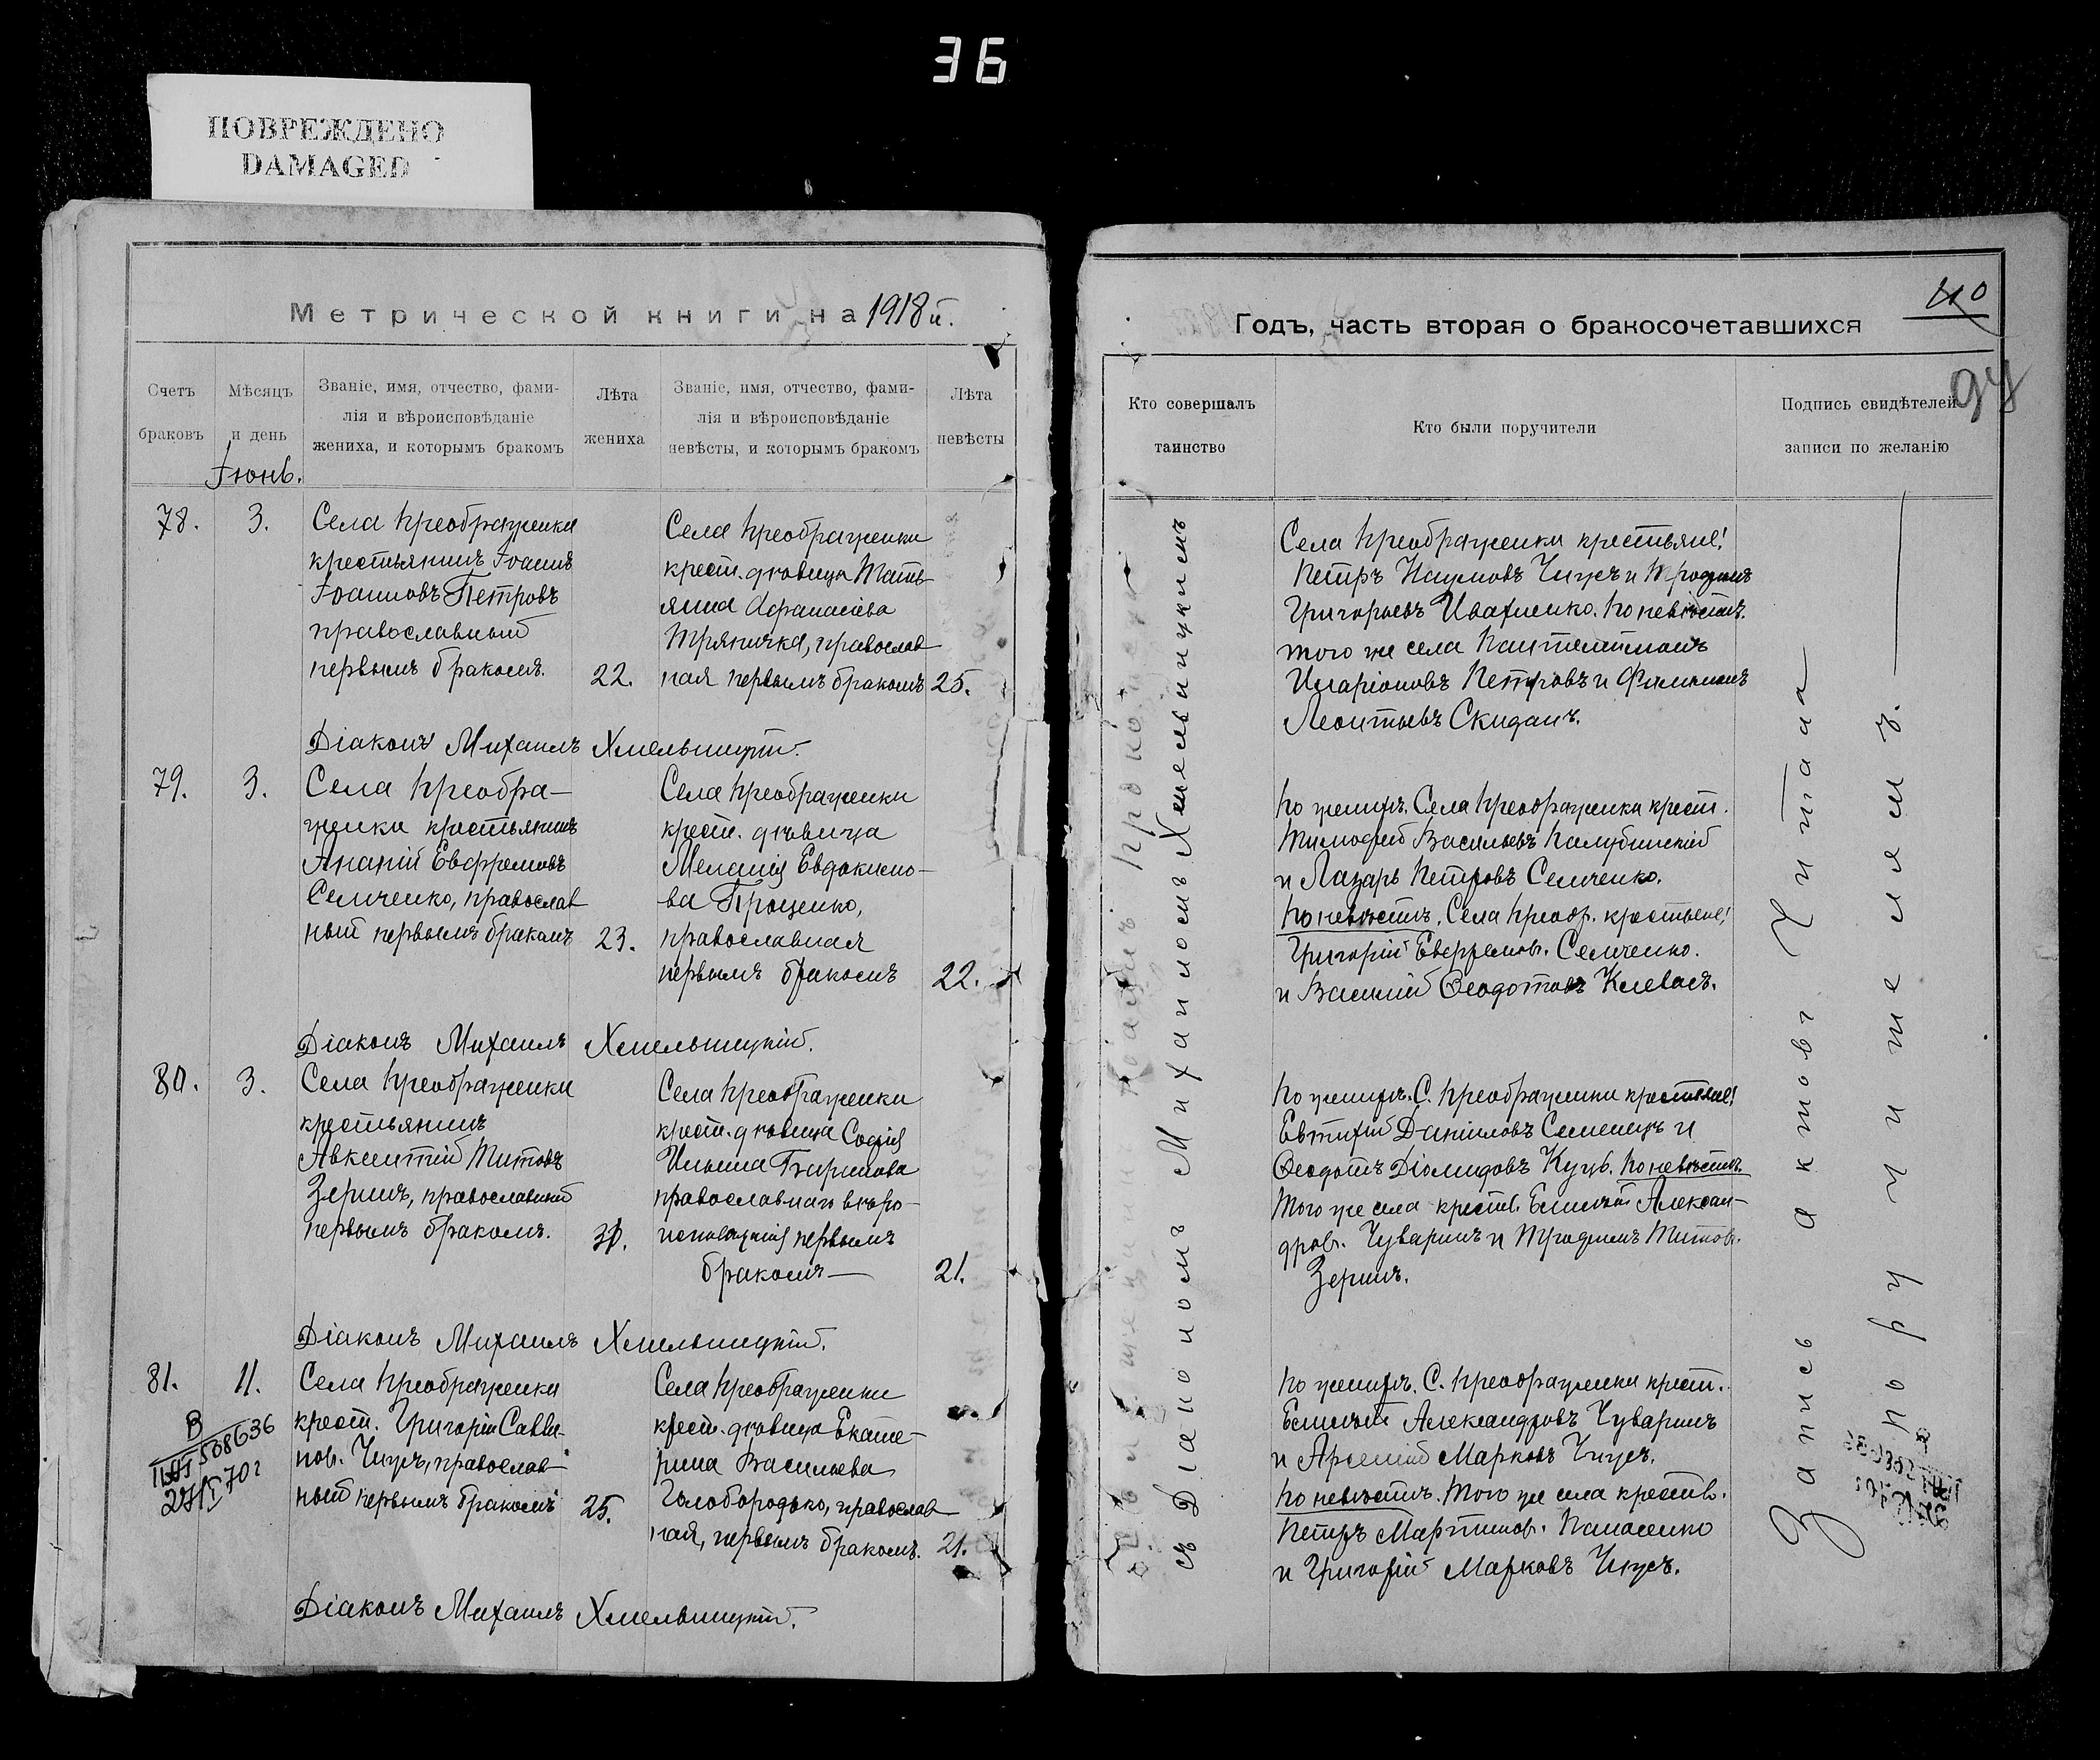 36
ПОВРЕЖДЕНО
DAMAGED
Метрической книги на 1918 й.
Счетъ браковъ
Мѣсяцъ и день
Званіе, имя, отчество, фами-
лія и вѣроисповѣданіе
жениха, и которымъ бракомъ
Лѣта жениха
Званіе, имя, отчество, фами-
лія и вѣроисповѣданіе
невѣсты, и которымъ бракомъ
Лѣта невѣсты
Іюнь.
78.
3.
Села Преображенки
крестьянинъ Іоаннъ
Іоанновъ Петровъ
православный
первымъ бракомъ.
22.
Села Преображенки
крест. дѣвица Тать-
яна Афанасіева
Тряничка, православ
ная первымъ бракомъ
25.
Діаконъ Михаилъ Хмельницкій.
79.
3.
Села Преобра-
женки крестьянинъ
Ананій Евфремовъ
Семченко, православ
ный первымъ бракомъ
23.
Села Преображенки
крест. дѣвица
Меланія Евдокимо-
ва Проценко,
православная
первымъ бракомъ
22.
Діаконъ Михаилъ Хмельницкій.
80.
3.
Села Преображенки
крестьянинъ
Авксентій Титовъ
Зеринъ, православный
первымъ бракомъ.
Села Преображенки
крест. дѣвица Софія
Ильина
православнаго вѣро-
исповѣданія первымъ
бракомъ
21.
Діаконъ Михаилъ Хмельницкій.
81.
11.
Села Преображенки
крест. Григорій Савви-
нов. Чиусъ, православ-
ный первымъ бракомъ
25.
Села Преображенки
крест. дѣвица Екате-
рина Васильева
Голобородько, православ
ная, первымъ бракомъ.
21.
Діаконъ Михаилъ Хмельницкій.
Годъ, часть вторая о бракосочетавшихся
110
Кто совершалъ таинство
Кто были поручители
Подпись свидѣтелей
записи по желанію
съ Діакономъ Михаиломъ Хмельницкимъ
Села Преображенки крестьяне:
Петръ Наумовъ Чиусъ и Трофимъ
Григорьевъ Ивахненко. По невѣстѣ.
того же села Пантелеимонъ
Иларіоновъ Петровъ и Филимонъ
Леонтьевъ Скиданъ.
По женихѣ. Села Преображенки крест.
Тимофей Васильевъ Калубинскій
и Лазарь Петровъ Семченко.
По невѣстѣ. Села Преобр. крестьяне:
Григорій Евфремов. Семченко.
и Василій Ѳеодотовъ Клевасъ.
По женихѣ. С. Преображенки крестьяне:
Евтихій Даніиловъ Семенецъ и
Ѳеодотъ Діомидовъ Куць. По невѣстѣ.
Того же села крестьяне Алексан-
дров. Чуваринъ и Трофимъ Титов.
Зеринъ.
По женихѣ. С. Преображенки крест.
Александровъ Чуваринъ
и Арсеній Марковъ Чиусъ.
По невѣстѣ. Того же села крестьяне
Петръ Мартинов. Панасенко
и Григорій Марковъ Чиусъ.
Запись актовъ Читана
поручителямъ.